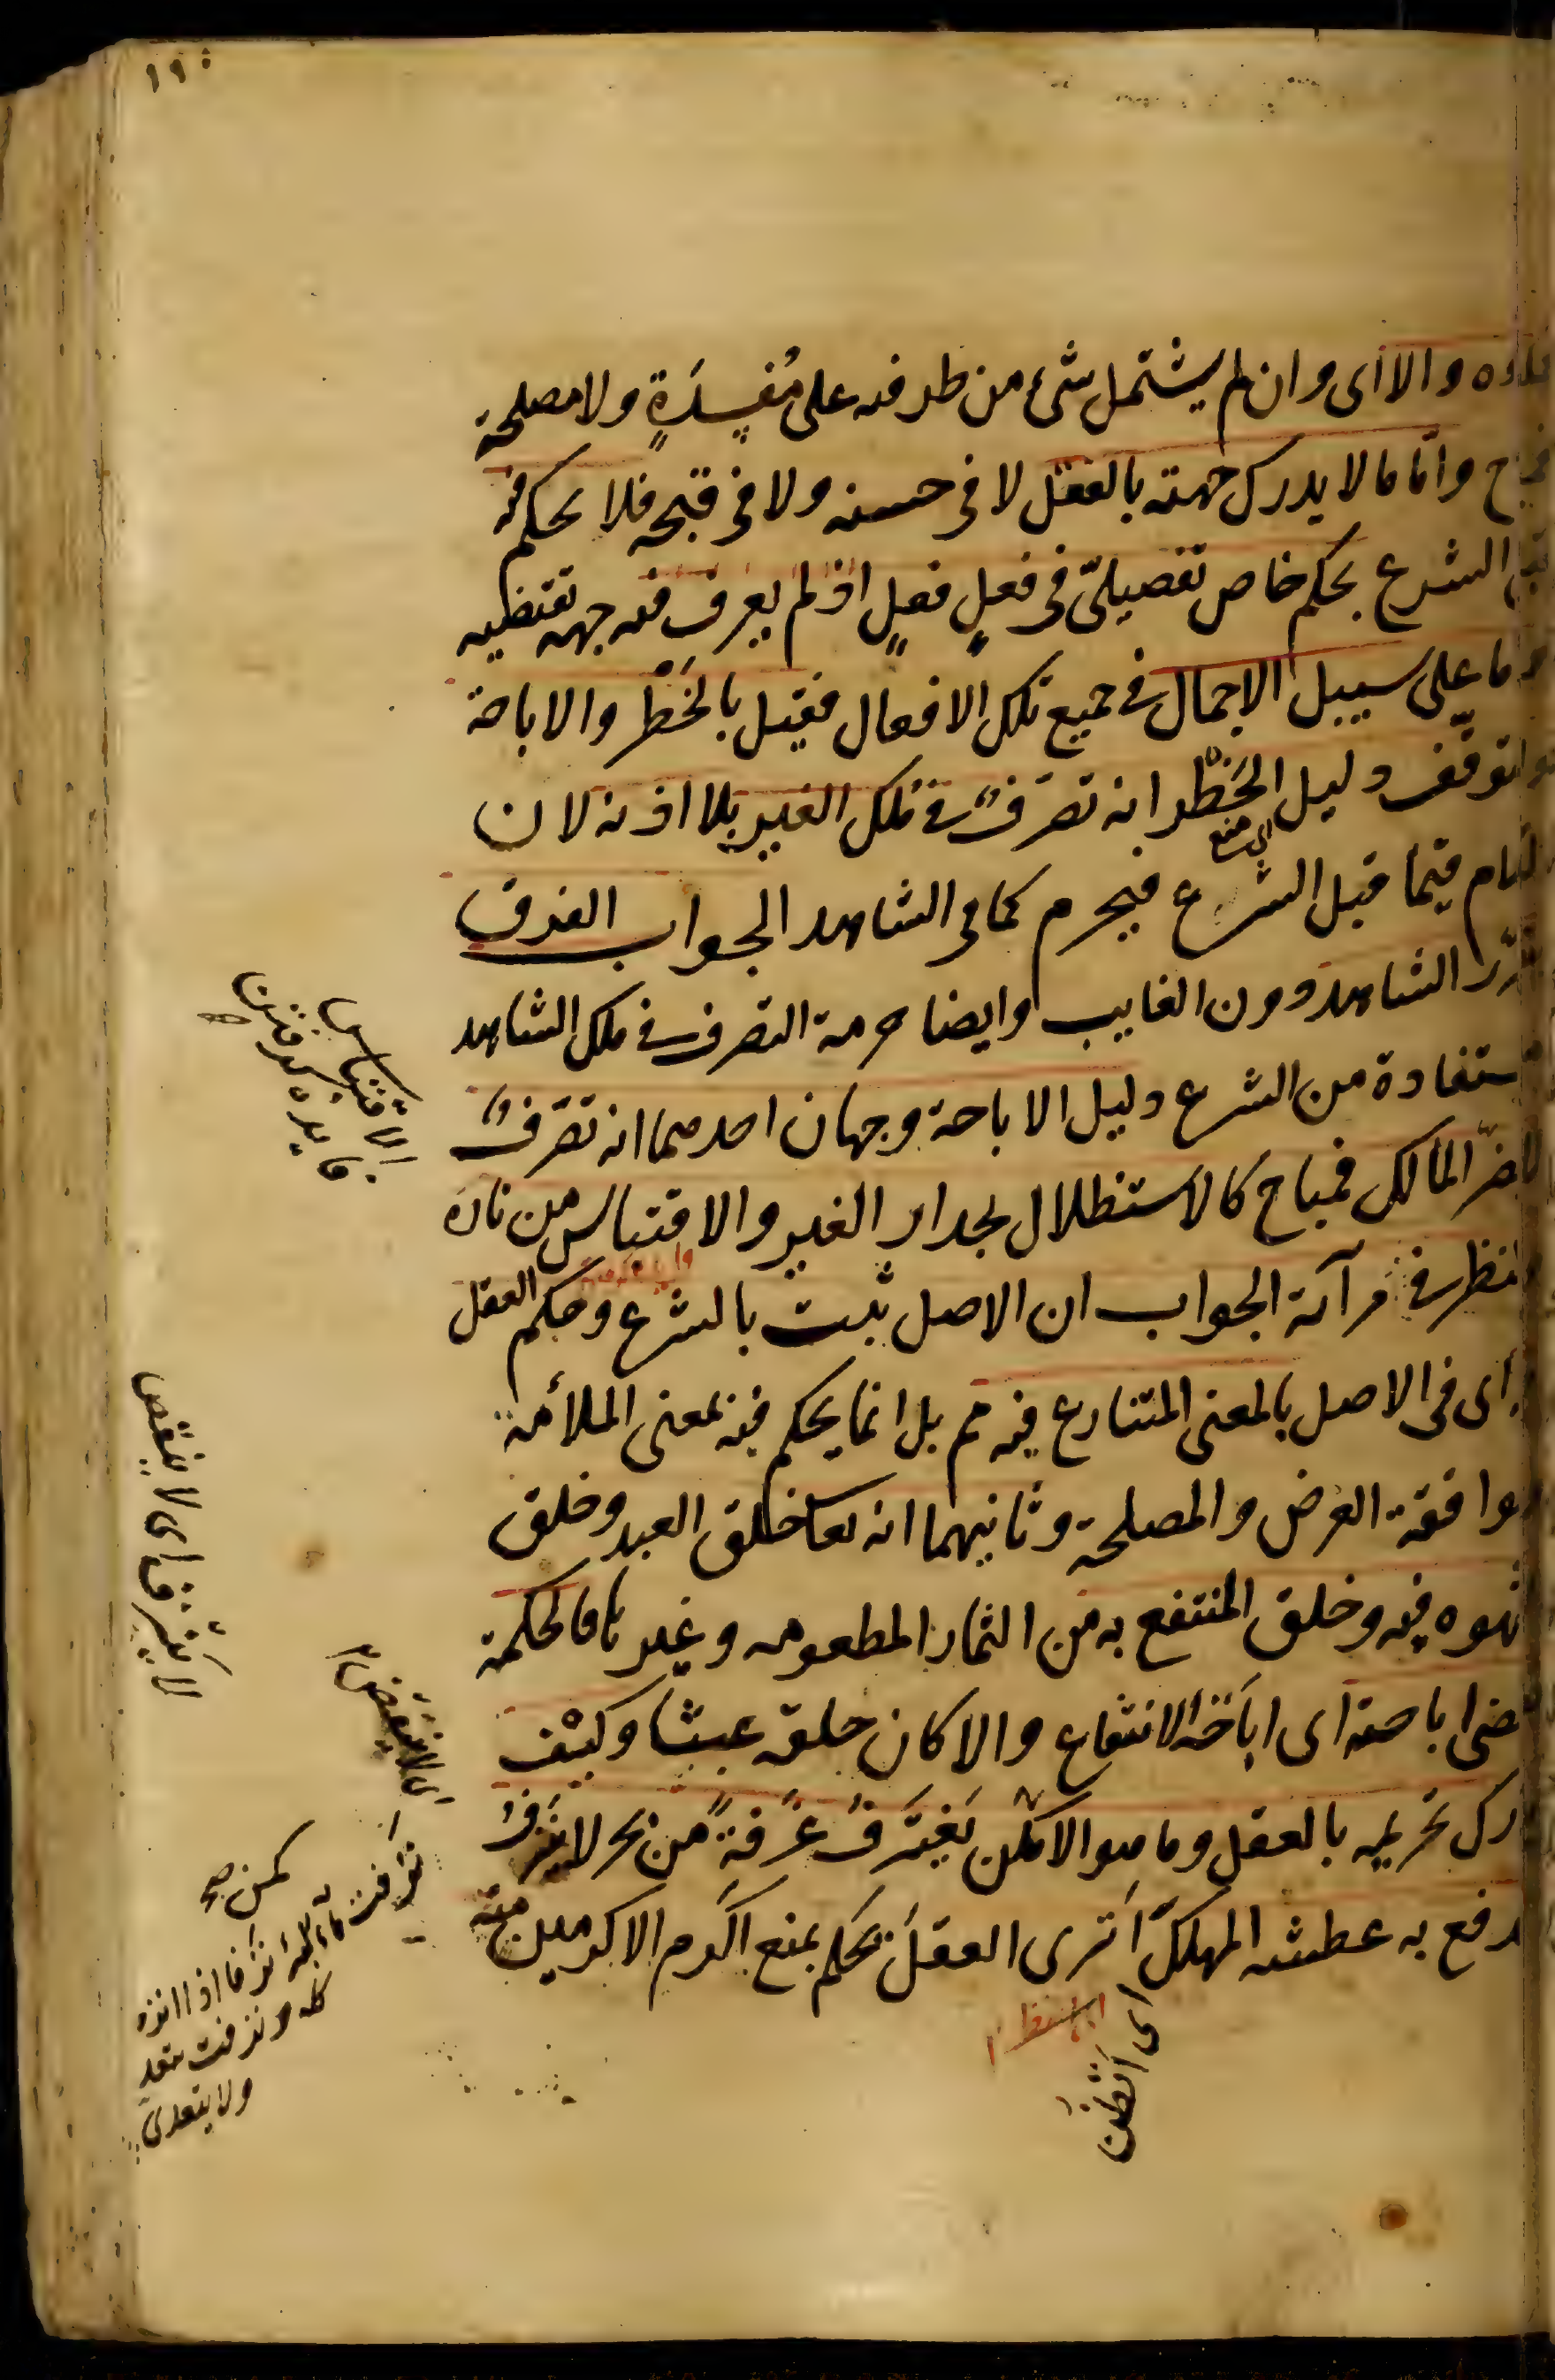 ١٩٠
والا اى وان لم يشتمل شىء من طرفيه على مُفسِدَةٍ ولا مصلحة
وامّا ما لا يدرك جهته بالعقل لا فى حسنه ولا فى قبحه فلا يحكم فيه
قبل الشرع بحكم خاص تفصيلىّ فى فعلٍ فعلٍ اذ لم يعرف فيه جهة تقتضيه
واما على سبيل الاجمال فى جميع تلك الافعال فقيل بالحَظْر والاباحة
والتوقّف دليل الحَظْر انه تصرّفٌ فى ملك الغير بلا اذنه لان
فيما قبل الشرع فيحرم كما فى الشاهد الجواب الفرق
الشاهد دون الغايب وايضا حرمة التصرف فى ملك الشاهد
مستفادة من الشرع دليل الاباحة وجهان احدهما انه تصرّفٌ
لا يضرّ المالك فمباح كالاستظلال بجدار الغير والاقتباس من ناره
والنظر فى مرآته الجواب ان الاصل ثبت بالشرع وحكم العقل
اى فى الاصل بالمعنى المتنازع فيه مم بل انما يحكم فيه بمعنى الملائمة
وموافقة الغرض والمصلحة وثانيهما انه تعا خلق العبد وخلق
الشهوة فيه وخلق المنتفع به من الثمار المطعومه وغيرها فالحكمة
تقتضى اباحته اى اباحَة الانتفاع والا كان خلقه عبثا وكيْف
يدرك تحريمه بالعقل وما هو الا كمن يَغْتَرِفُ غَرفةً من بحر لا يَنزفُ
ليدفع به عطشه المهلك اَترى العقلَ يحكم بمنع اكرم الاكرمين منه
اى منع
الاقتباس
فايده كرفتن
لا يَنْزف اى لا ينقص
اى لا ينقص
كمن صح
نزفت ماء البئر نزفا اذا انزه
كله ونزفت يتعد
ولا يتعدى
اى اَتظن